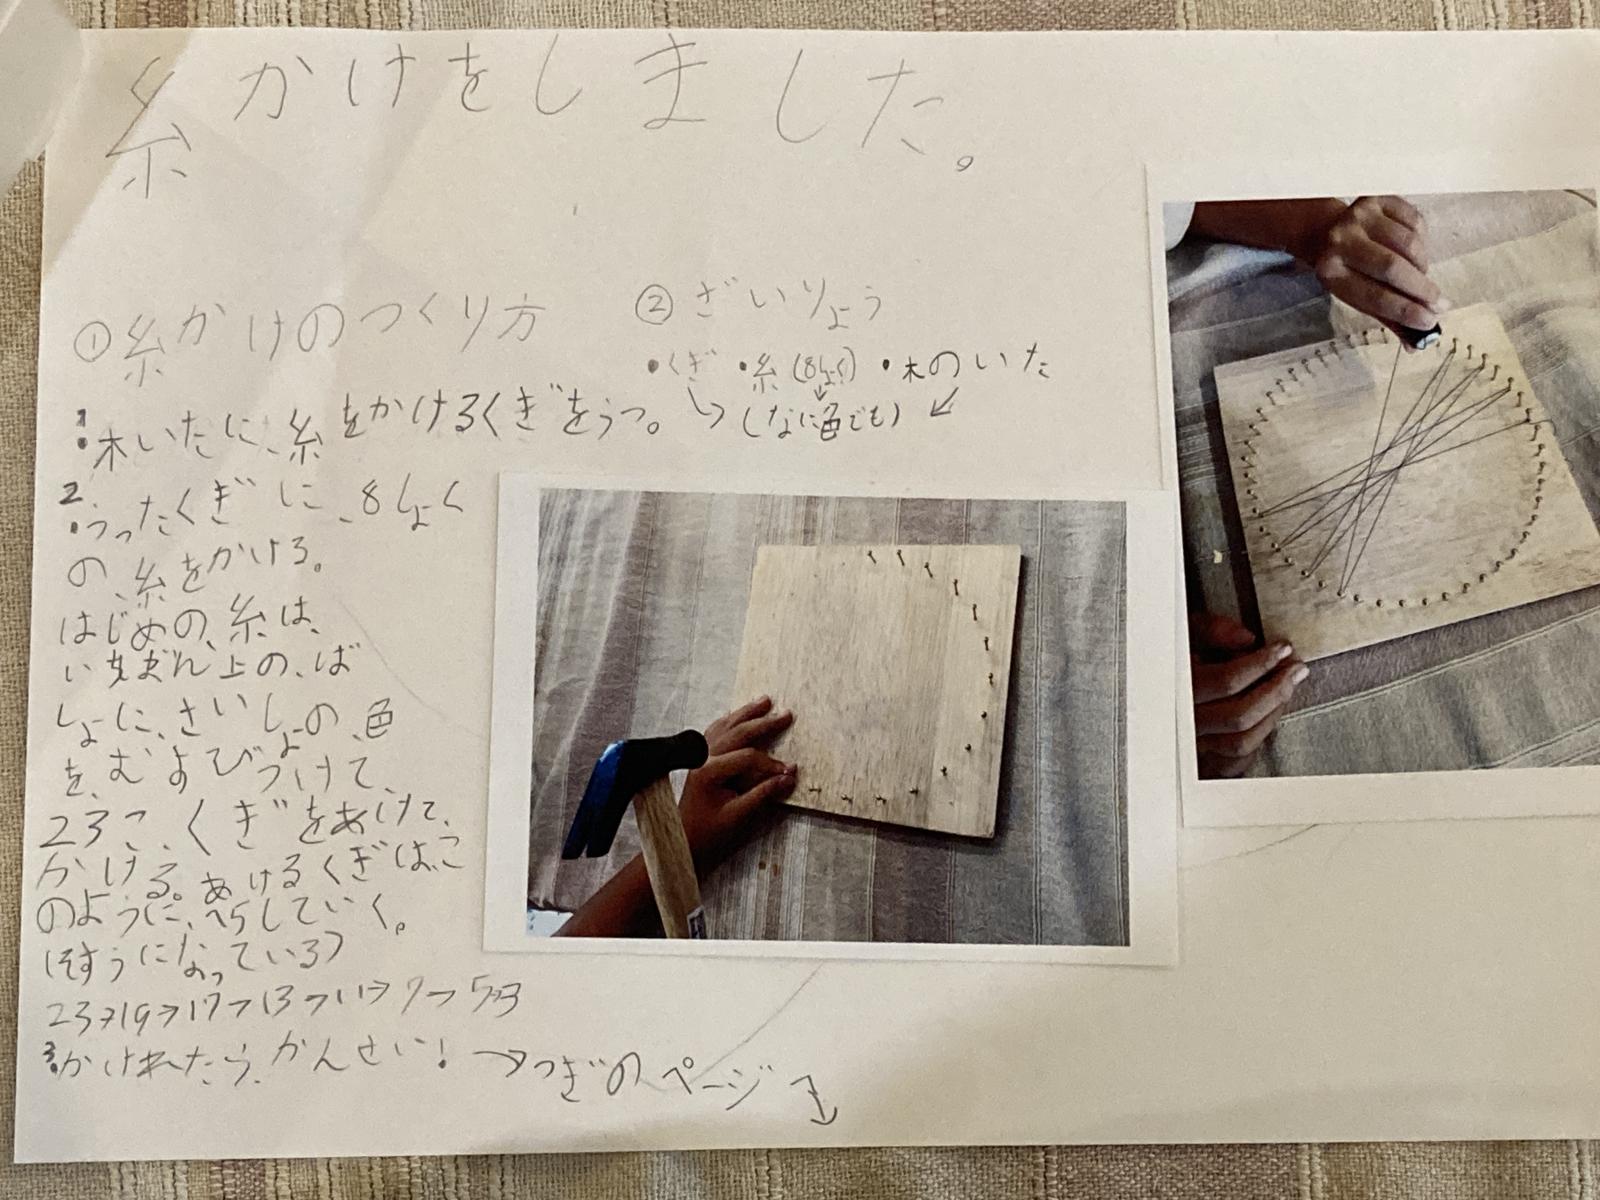 糸かけをしました。
①糸かけのつくり方
1.木いたに、糸をかけるくぎをうつ。
2.うったくぎに、8しょく
の、糸をかける。
はじめの、糸は、
いちばん上の、ば
しょに、さいしょの、色
を、むすびつけて、
23こ、くぎをあけて、
かける。あけるくぎは、こ
のように、へらしていく。
(そすうになっている)
23→19→17→13→11→7→5→3
3.かけれたら、かんせい! →つぎのページ
②ざいりょう
・くぎ ・糸(8しょく) ・木のいた
(なに色でも)